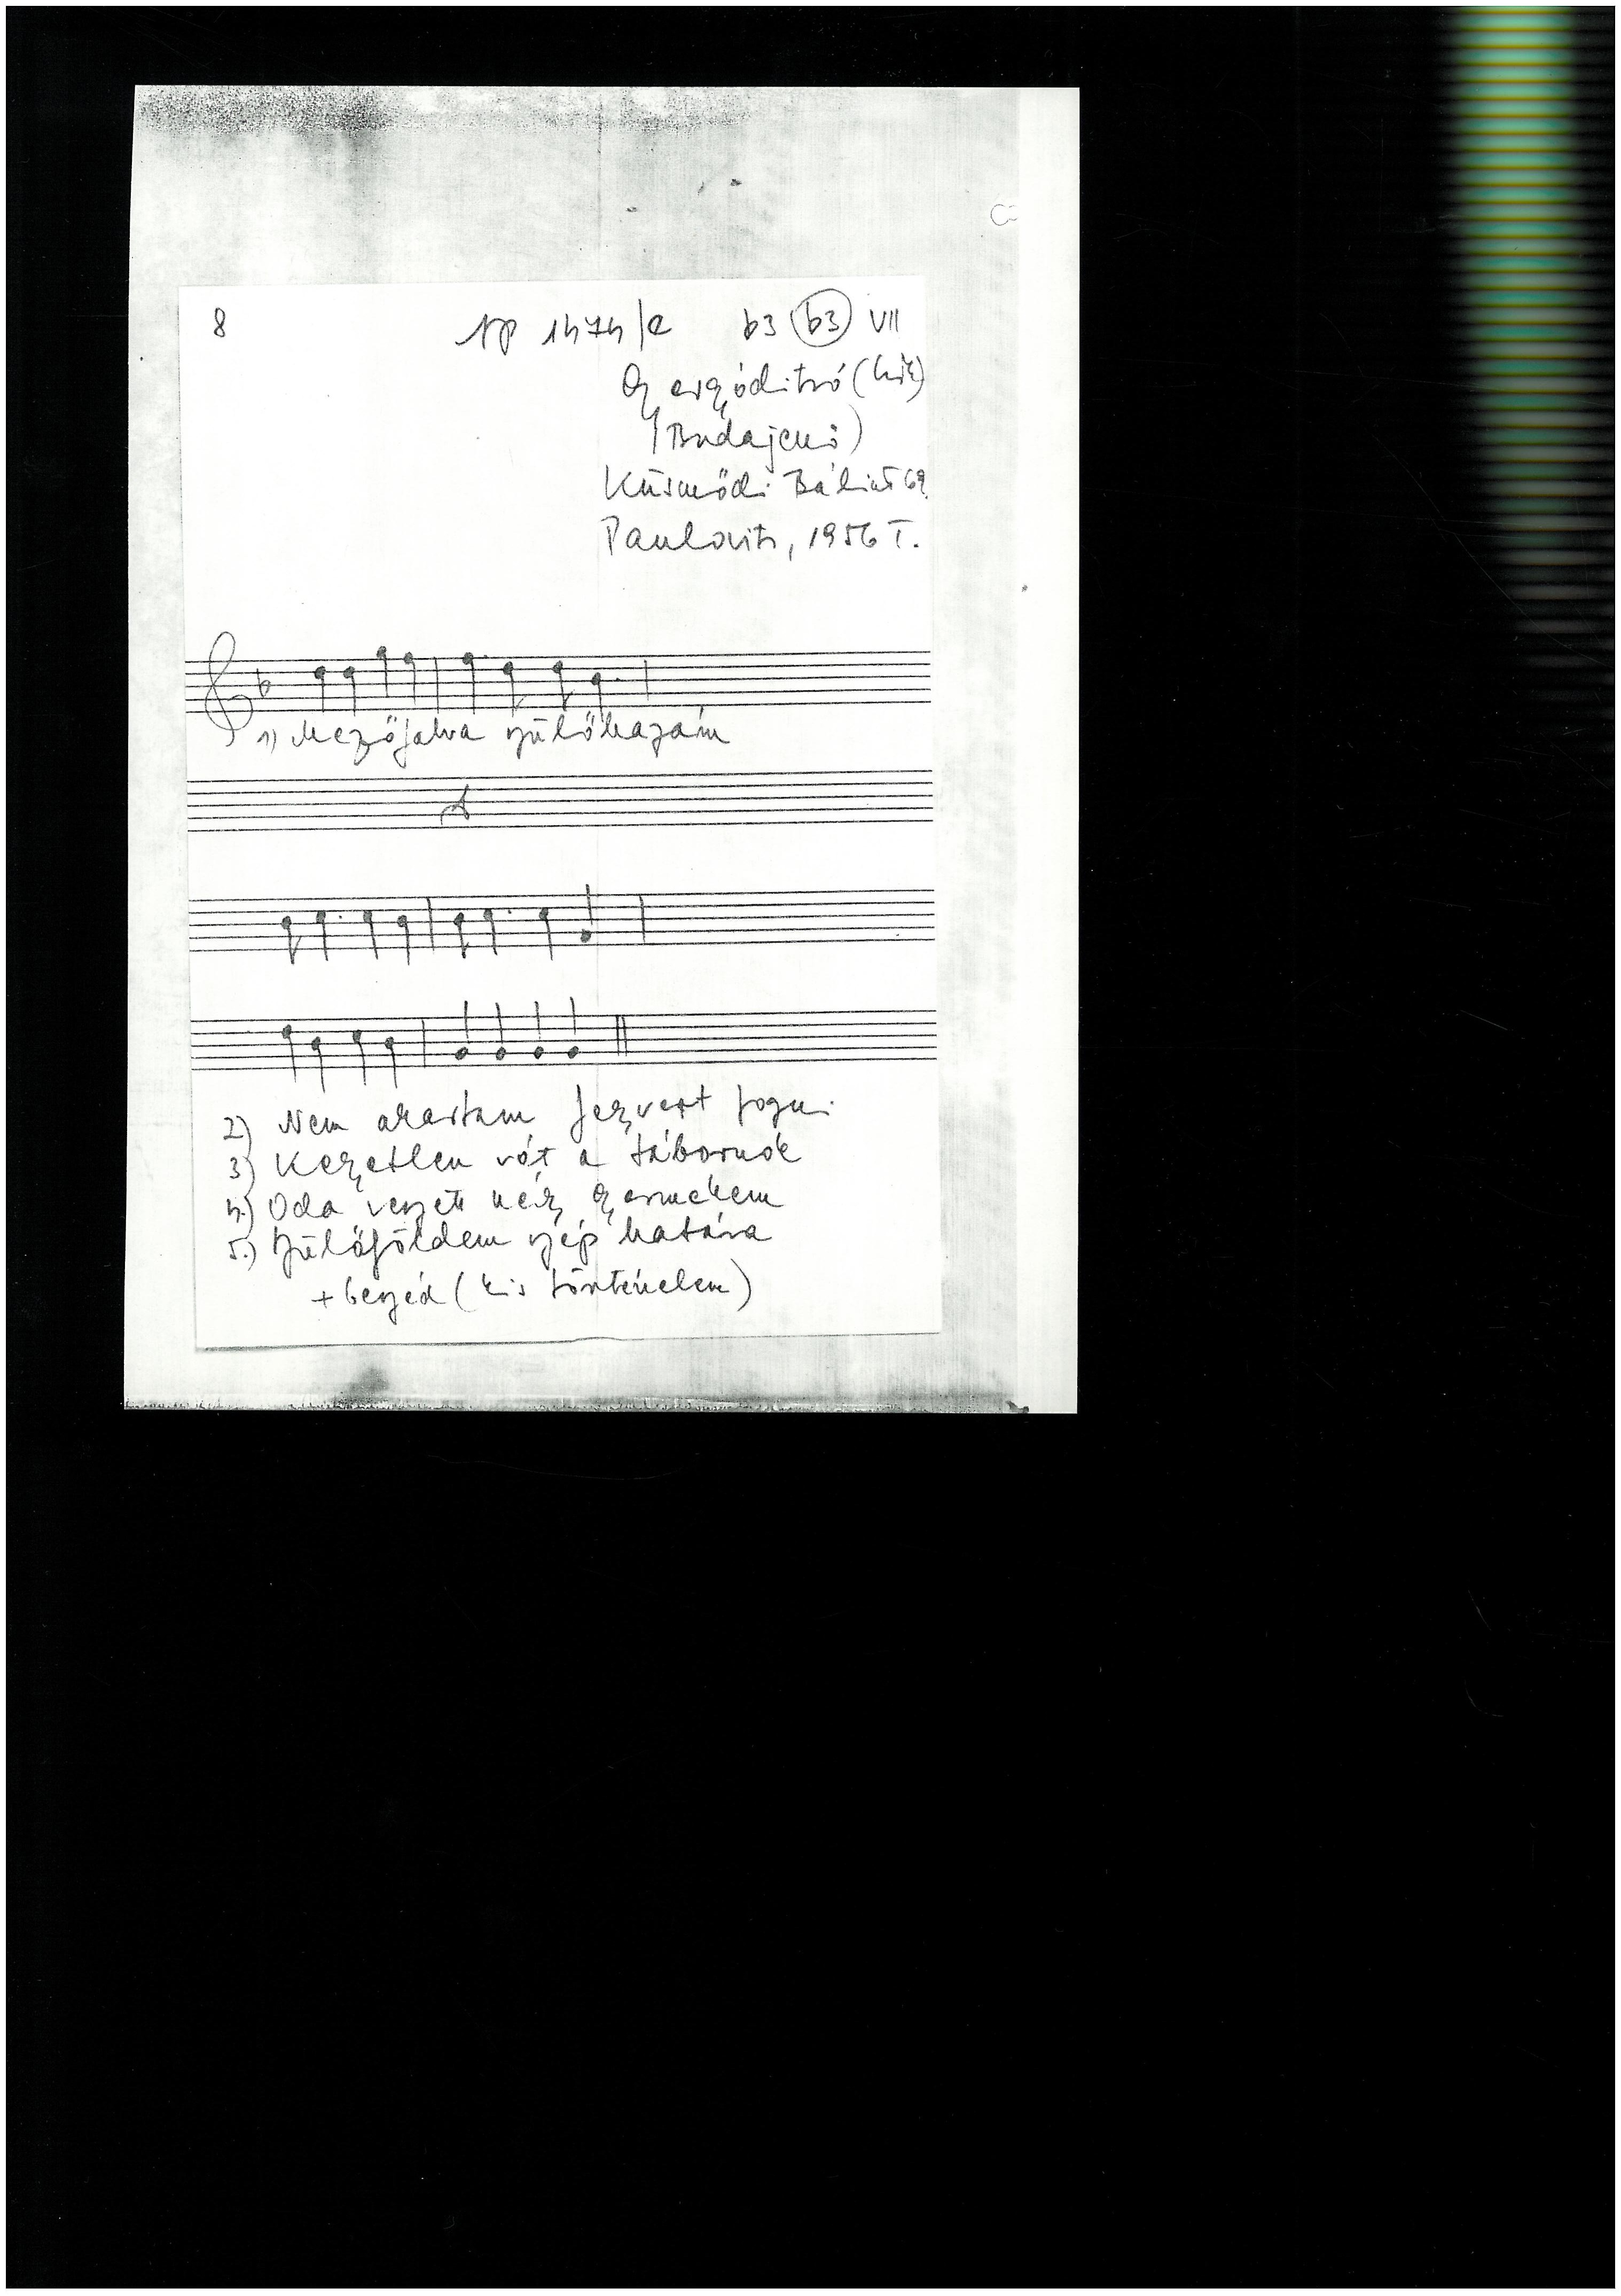 8 AP 1474/e b3 b3 VII
Gyergyóditró (Csík)
(Budajenő)
Küsmődi Bálint 69
Paulovits, 1956 I.
1) Mezőjalva szülőhazám
A
2) Nem akartam fegyvert fogni
3) Kegyetlen vót a tábornok
4.) Oda veszett négy gyermekem
5.) Szülőföldem szép határa
+ beszéd (kis történelem)